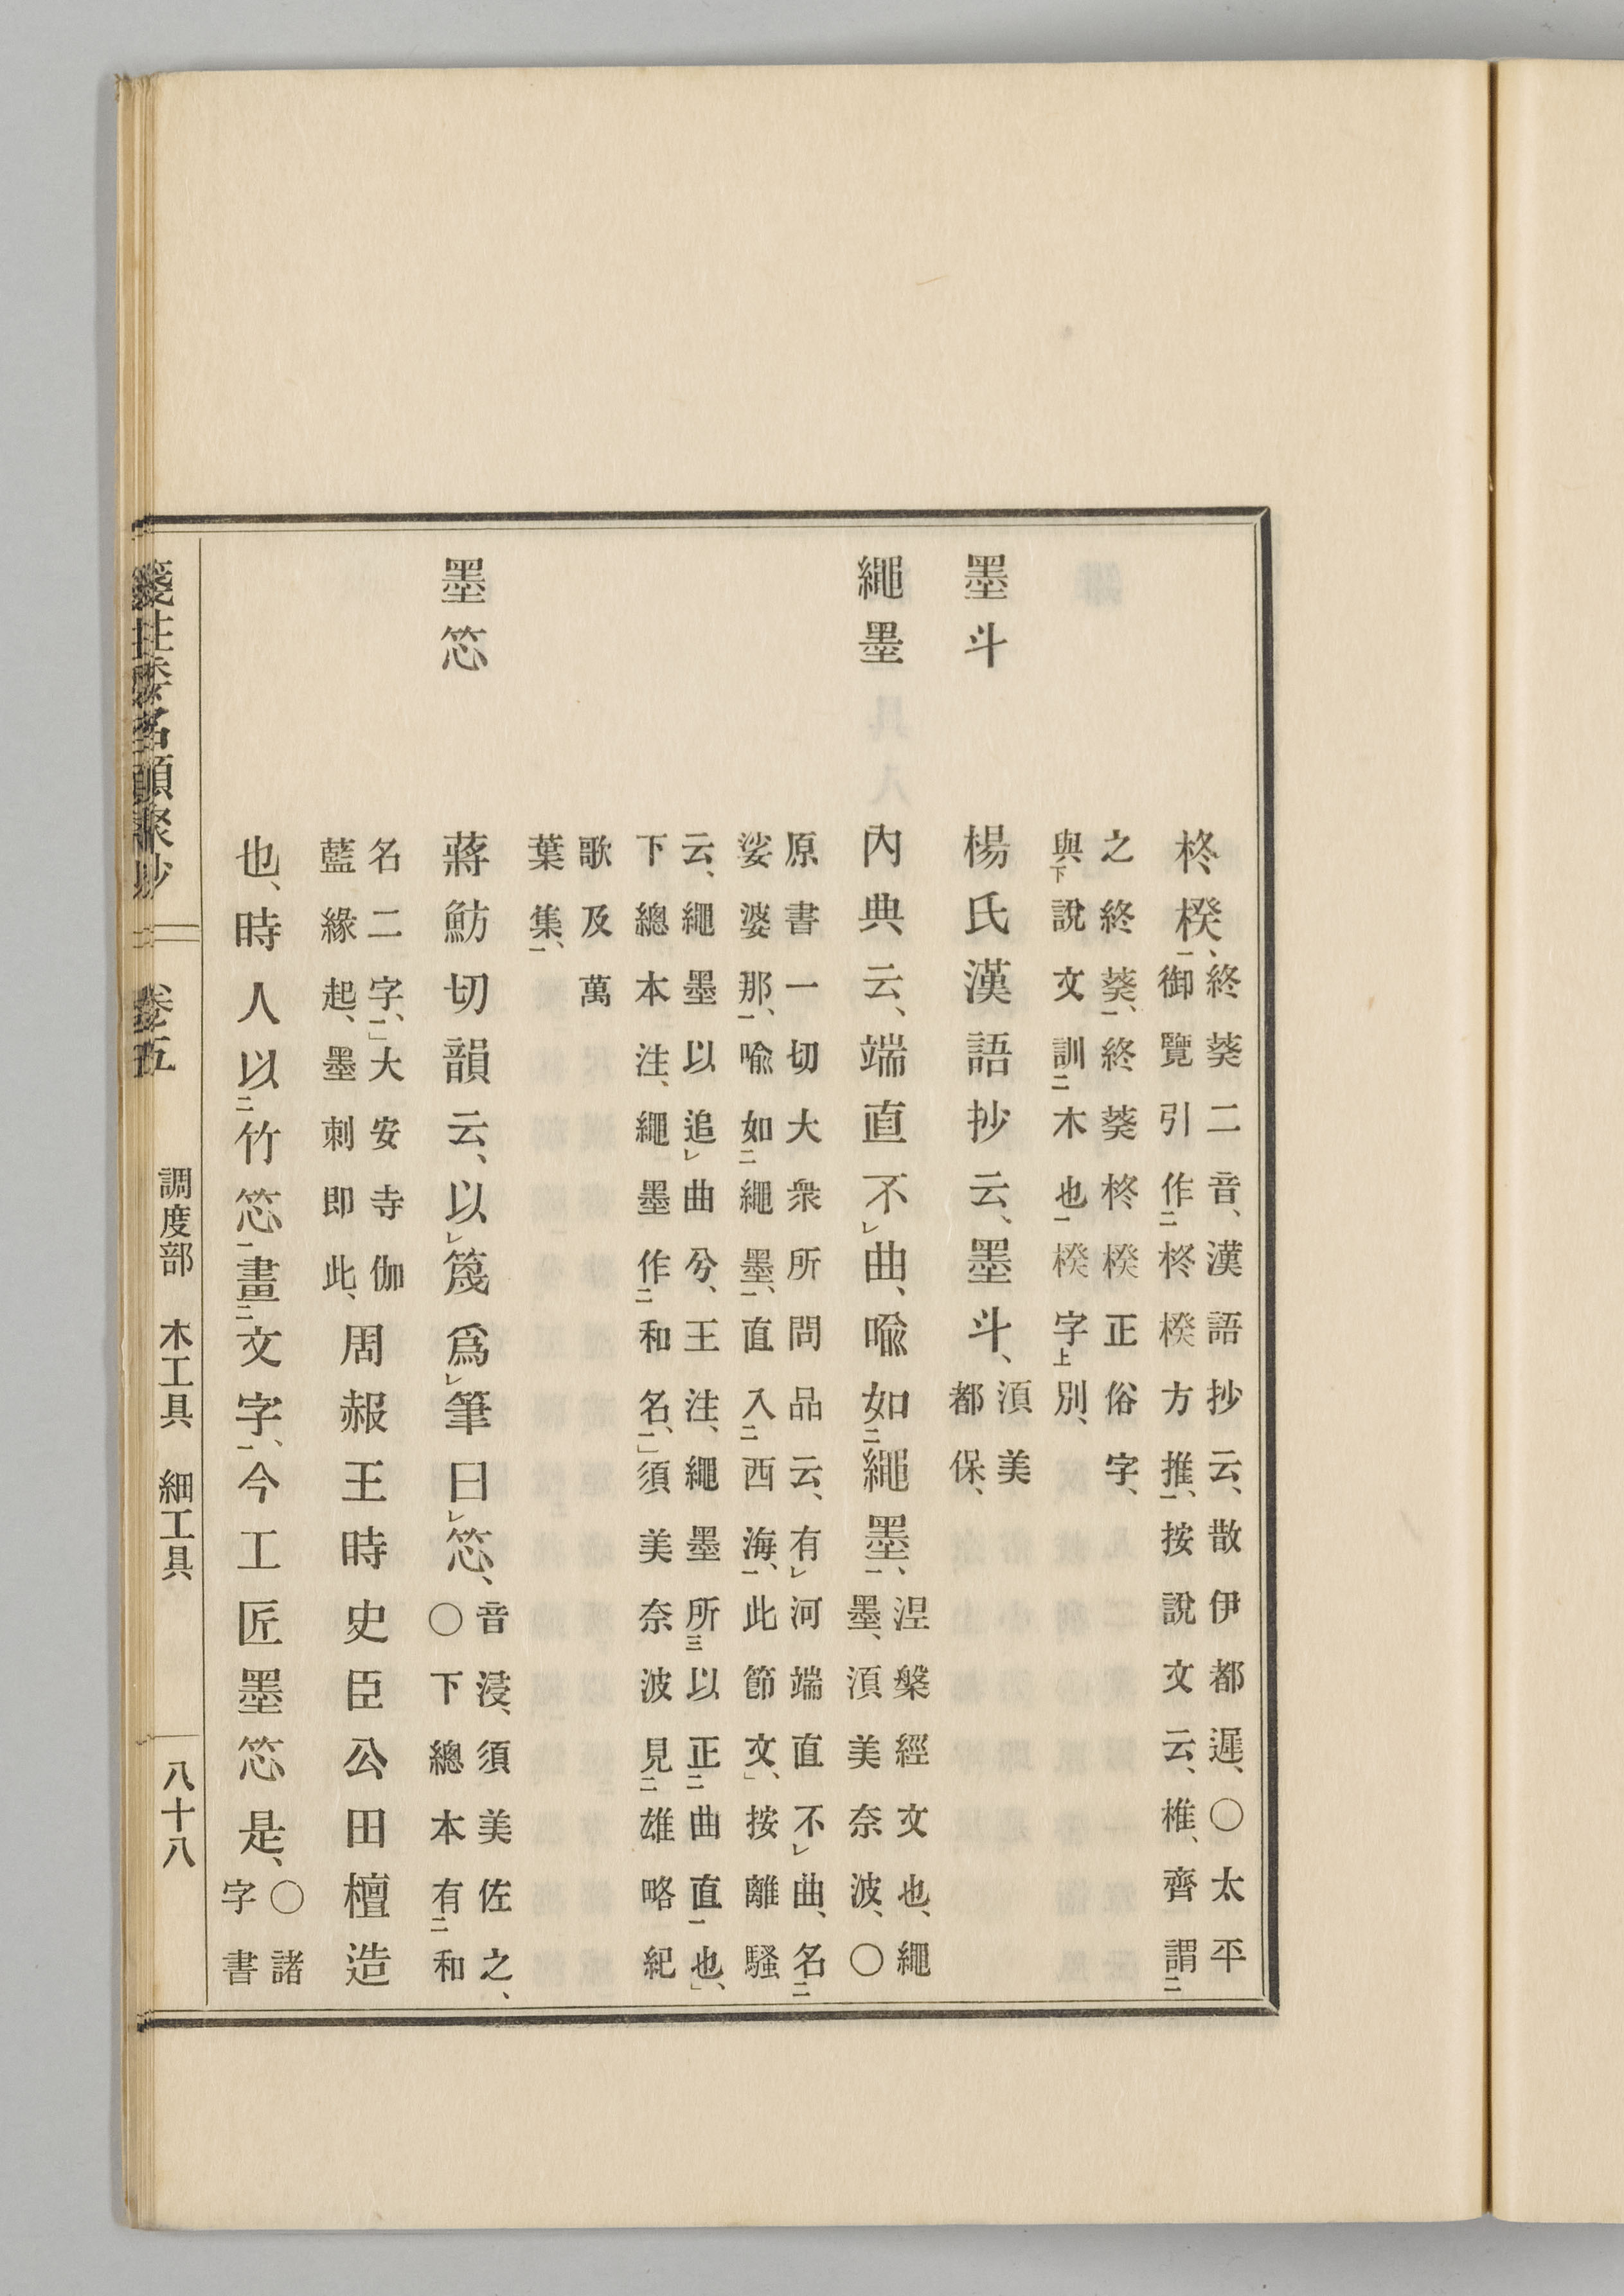 柊楑一、
終葵二音、漢語抄云、散伊都遲、〇太平
御覽引作二柊楑方推一、按說文云、椎、齊謂二
之終葵一、終葵柊楑正俗字、
與下說文訓二木也一楑字上別、
墨斗　楊氏漢語抄云、墨斗、
湏美
都保、
繩墨　內典云、端直不レ曲、喩如二繩墨一、
涅槃經文也、繩
墨、湏美奈波、〇
原書一切大衆所問品云、有レ河端直不レ曲、名二
娑婆那一、喩如二繩墨一、直入二西海一、此節文」、按離騷
云、繩墨以追レ曲兮、王注、繩墨所三以正二曲直一也」、
下總本注、繩墨作二和名一、」須美奈波見二雄略紀
歌及萬
葉集一、
墨⿱⺮心　蔣魴切韻云、以レ篾爲レ筆曰レ⿱⺮心、
音浸、須美佐之、
〇下總本有二和
名二字一、」大安寺伽
藍緣起、墨刺即此、
周赧王時史臣公田檀造
也、時人以二竹⿱⺮心一畫二文字一、今工匠墨⿱⺮心是、
〇諸
字書
箋註倭名類聚抄　卷五　調度部　木工具　細工具　八十八